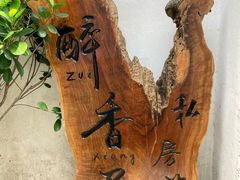 醉
ZUI
香
xiang
私
房